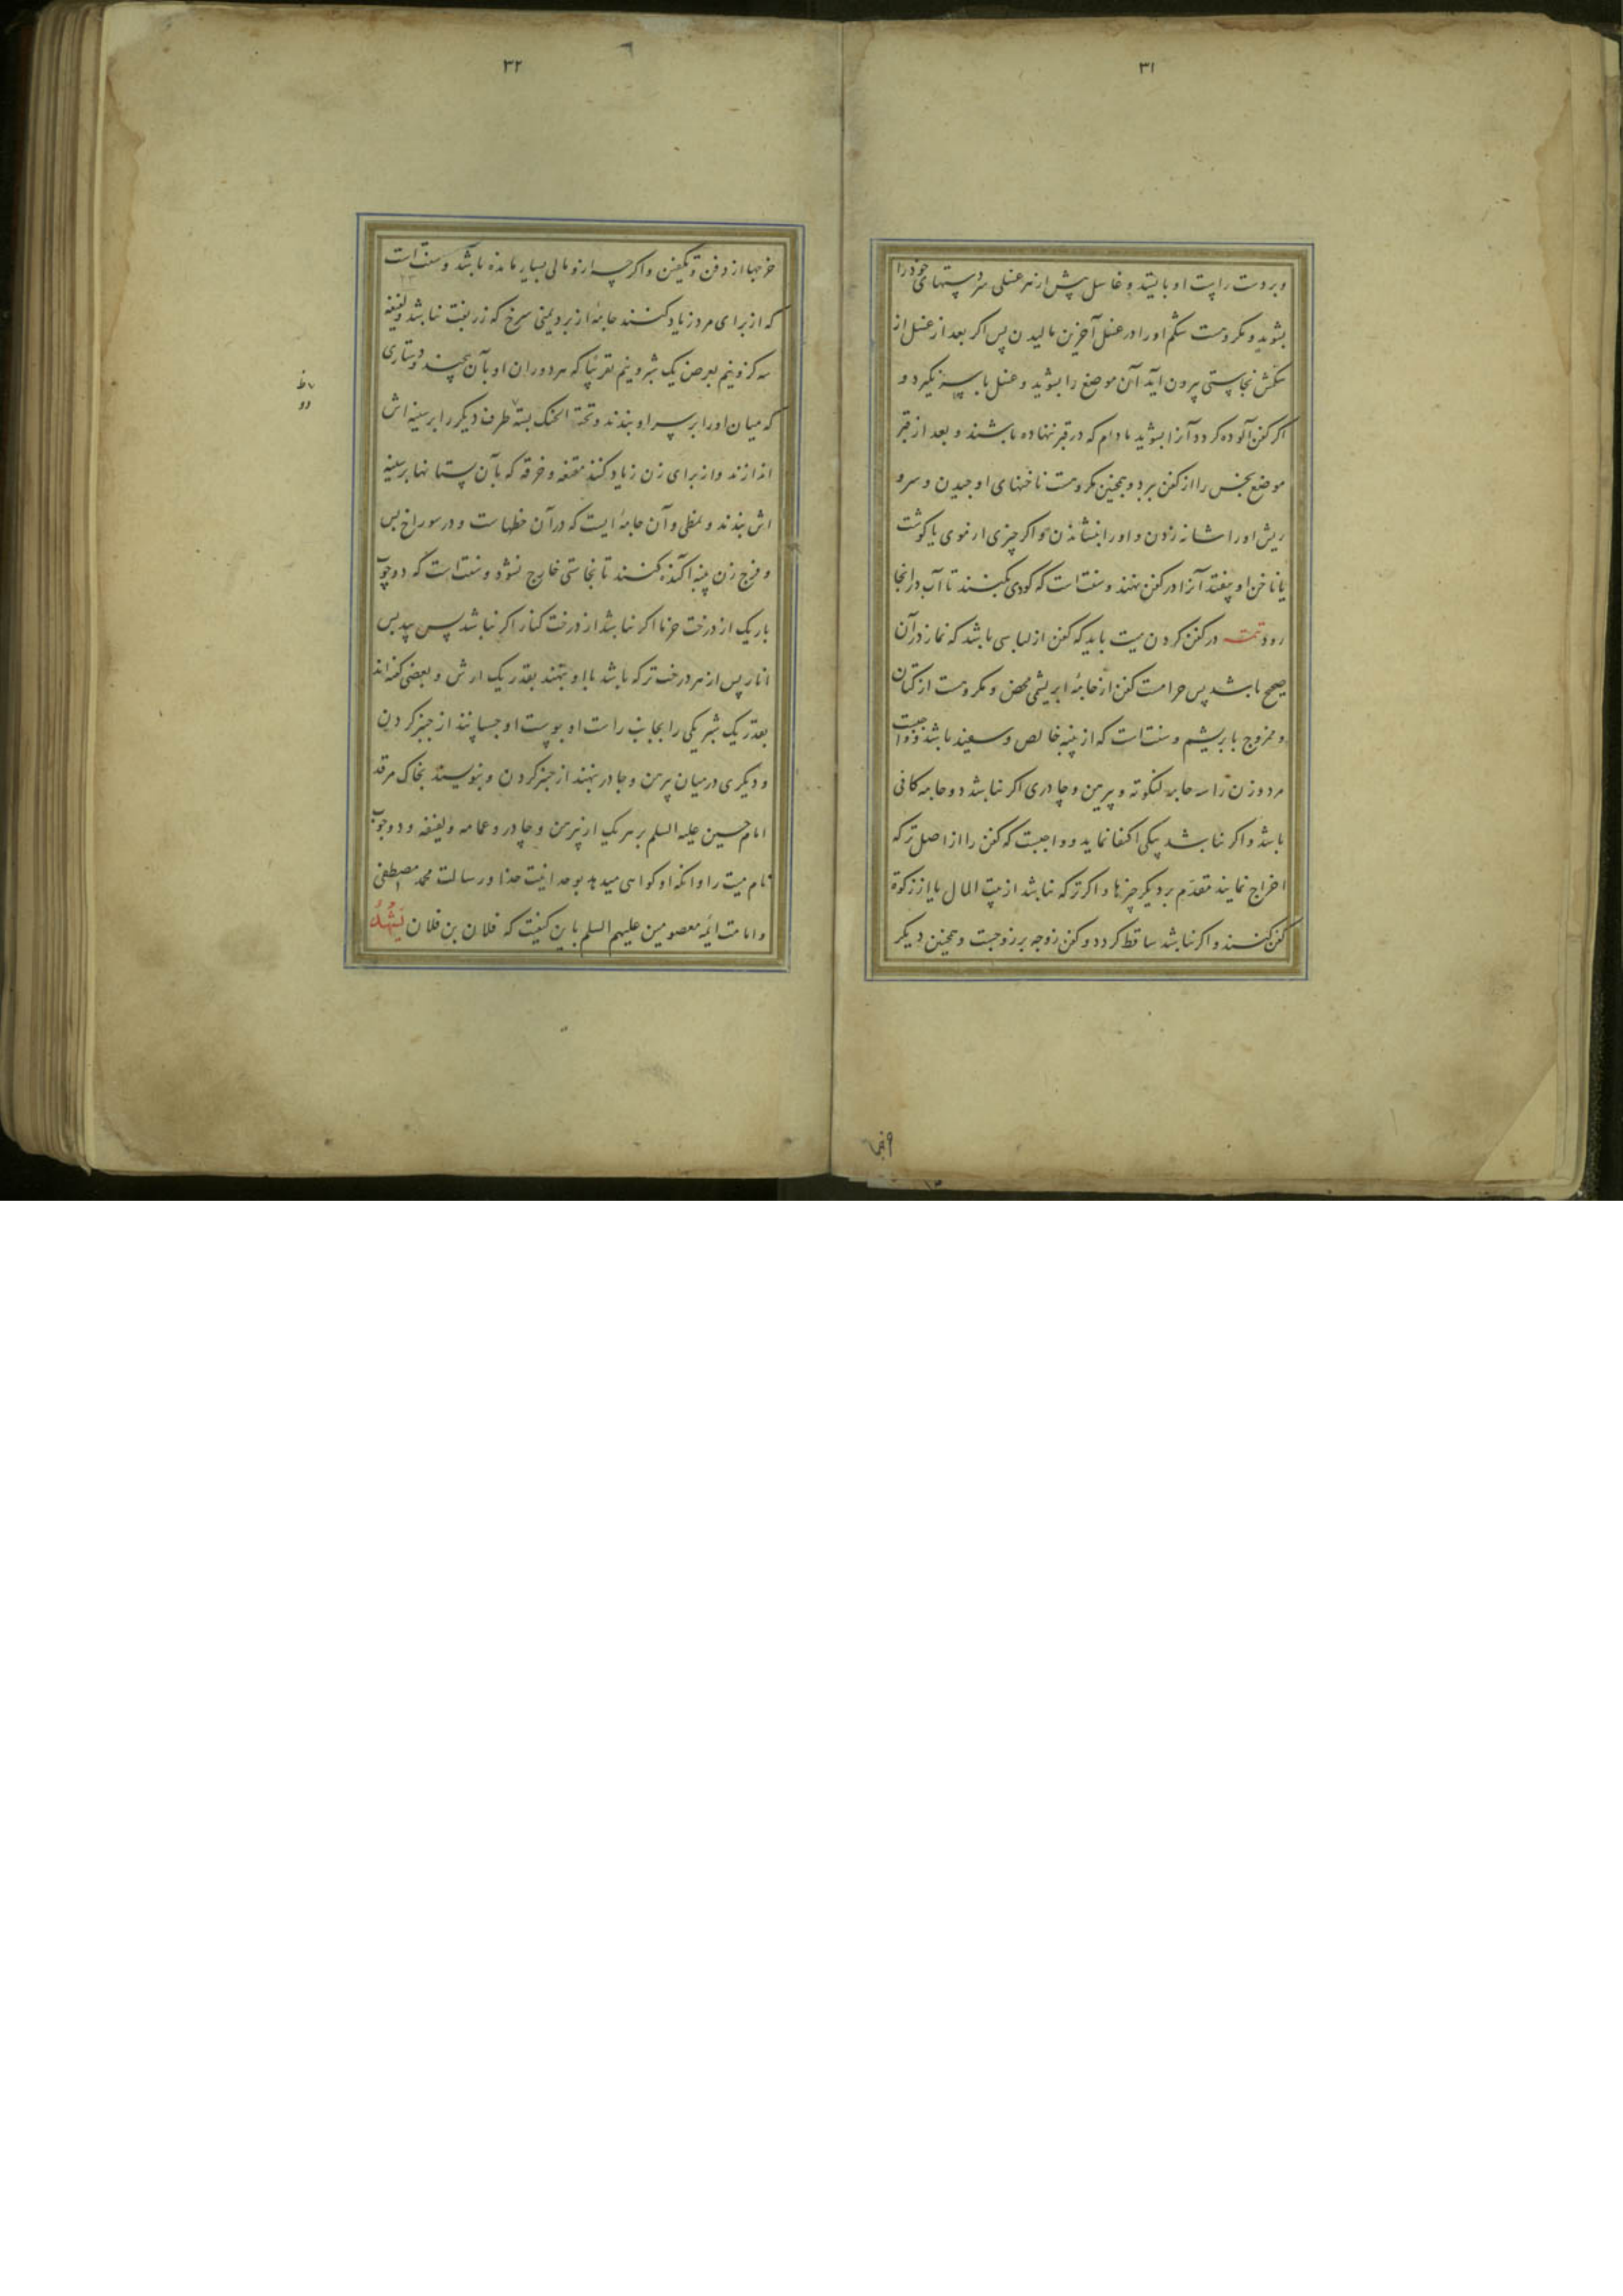 ۳۱
و بر دست راست او بایستد و غاسل پیش از هر غسلی هر دستهای خود را
بشوید و مکروهست شکم او را در غسل آخرین مالیدن پس اکر بعد از غسل از
شکمش نجاستی بیرون آید آن موضع را بشوید و غسل باز سر نکیرد و
اکر کفن آلوده کردد آنرا بشوید مادام که در قبر ننهاده باشند و بعد از قبر
موضع نجس را از کفن ببرد و همچنین مکروهست ناخنهای او چیدن و سر و
ریش او را شانه زدن و او را بنشاندن و اکر چیزی از موی یا کوشت
یا ناخن او بیفتد آنرا در کفن نهند و سنت است که کودی بکنند تا آب در انجا
رود تتمه در کفن کردن میت باید که کفن از لباسی باشد که نماز در آن
صحیح باشد پس حرامست کفن از جامهٔ ابریشمی محض و مکروهست از کتان
و ممزوج بابریشم و سنت است که از پنبه خالص و سفید باشد و واجبست
مرد و زن را سه جامه لنکوته و پیرهن و چادری اکر نباشد دو جامه کافی
باشد و اکر نباشد بیکی اکتفا نماید و واجبست که کفن را از اصل ترکه
اخراج نمایند مقدم بر دیکر چیزها و اکر ترکه نباشد از بیت المال یا از زکوة
کفن کنند و اکر نباشد ساقط کردد و کفن زوجه بر زوجست و همچنین دیکر
۳۲
خرجها از دفن و تکفین و اکرچه از و مالی بسیار مانده باشد و سنت است
که از برای مرد زیاد کنند جامهٔ از برد یمنی سرخ که زربفت نباشد و لفافه
سه کز و نیم بعرض یک شبر و نیم تقریبا که هر دو ران او بآن بپیچند و دستاری
که میان او را بر سر او بندند و تحت الحنک بسته طرف دیکر را بر سینه اش
اندازند و از برای زن زیاد کنند مقنعه و خرقه که بآن پستانها بر سینه
اش بندند و نمطی و آن جامهٔ ایست که در آن خطهاست و در سوراخ پس
و فرج زن پنبه اکنده کنند تا نجاستی خارج نشود و سنت است که دو چوب
باریک از درخت خرما اکر نباشد از درخت کنار اکر نباشد پس بید پس
انار پس از هر درخت تر که باشد با او بنهند بقدر یک ارش و بعضی کفته اند
بقدر یک شبر یکی را بجانب راست او بپوست او چسبانند از چنبر کردن
و دیکری در میان پیرهن و چادر بنهند از چنبر کردن و بنویسند بخاک مرقد
امام حسین علیه السلم بر هر یک از پیرهن و چادر و عمامه و لفافه و دو چوب
نام میت را و انکه او کواهی میدهد بوحدانیت خدا و رسالت محمد مصطفی
و امامت ائمه معصومین علیهم السلم باین کیفیت که فلان بن فلان یَشْهَدُ